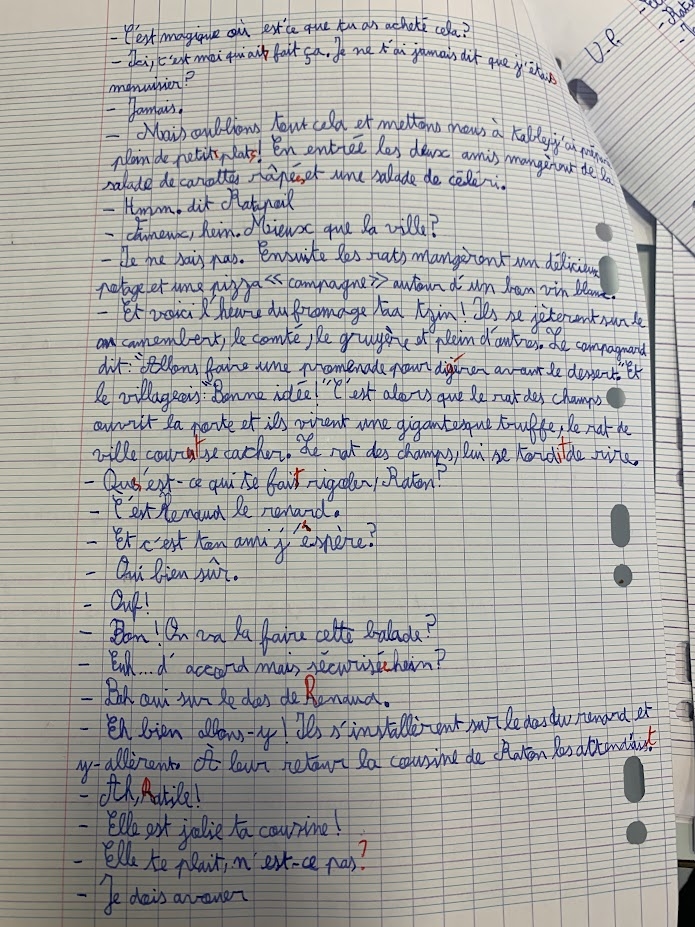 - C'est magique où est'ce que tu as acheté cela?
- Ici, c'est moi qui ait fait ça. Je ne t'ai jamais dit que j'étais
menuisier?
- Jamais.
- Mais oublions tout cela et mettons nous à table, j'ai préparé
plein de petits plats! En entrée les deux amis mangèrent de la
salade de carottes râpées et une salade de céleri.
- Hmm. dit Ratapoil
- Fameux, hein. Mieux que la ville?
- Je ne sais pas. Ensuite les rats mangèrent un délicieux
potage et une pizza << campagne >> autour d'un bon vin blanc.
- Et voici l'heure du fromage taa tzin! Ils se jètèrent sur le
camembert, le comté, le gruyère et plein d'autres. Le campagnard
dit: "Allons faire une promenade pour digérer avant le dessert." Et
le villageois: "Bonne idée!" C'est alors que le rat des champs
ouvrit la porte et ils virent une gigantesque truffe, le rat de
ville courut se cacher. Le rat des champs, lui se tordit de rire.
- Qu'est-ce qui te fait rigoler, Raton?
- C'est Renaud le renard.
- Et c'est ton ami j'espère?
- Oui bien sûr.
- Ouf!
- Bon! On va la faire cette balade?
- Euh... d'accord mais sécurisée hein?
- Bah oui sur le dos de Renaud.
- Eh bien allons-y! Ils s'installèrent sur le dos du renard et
y-allèrent. À leur retour la cousine de Raton les attendait.
- Ah, Ratile!
- Elle est jolie ta cousine!
- Elle te plait, n'est-ce pas?
- Je dois avouer